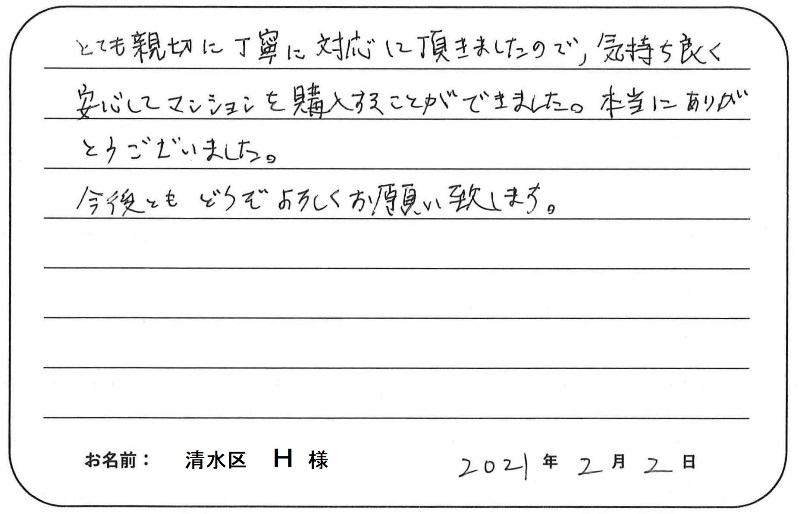 とても親切に丁寧に対応に頂きましたので、気持ち良く
安心してマンションを購入することができました。本当にありが
とうございました。
今後とも どうぞよろしくお願い致します。
お名前： 清水区 H 様 2021 年 2 月 2 日